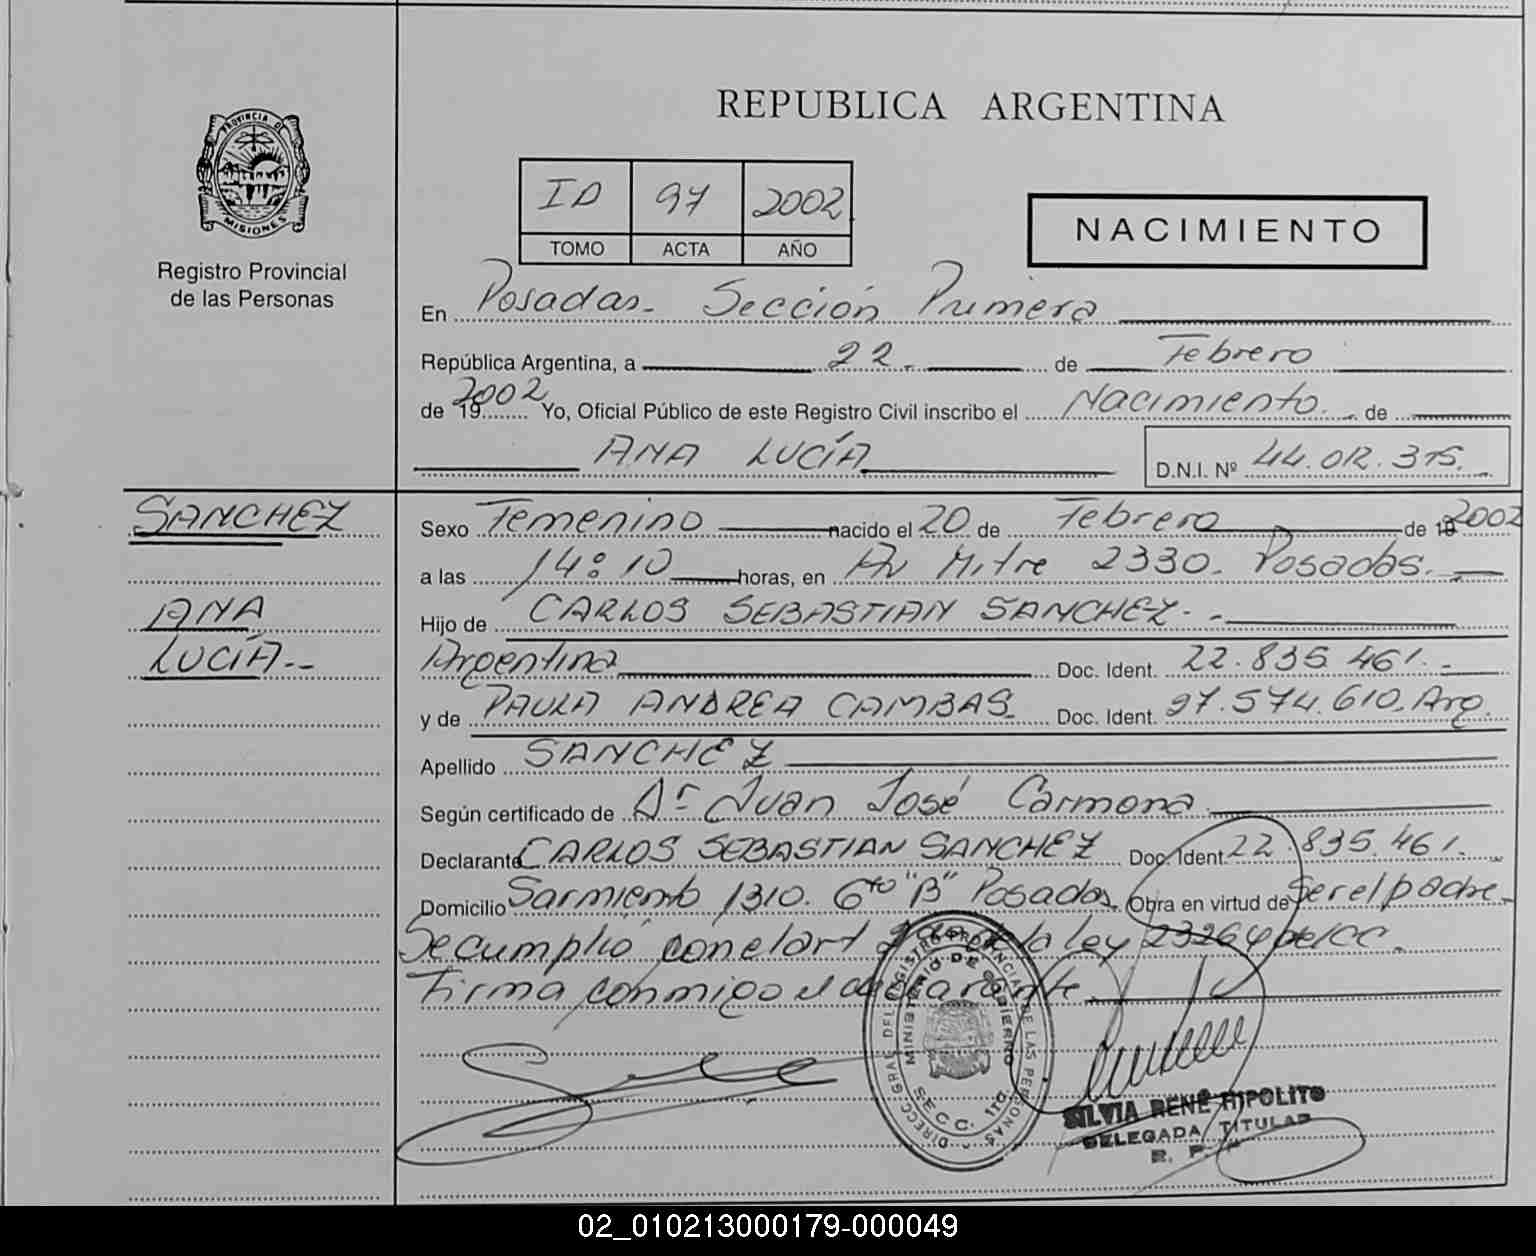 REPUBLICA ARGENTINA
PROVINCIA DE
MISIONES
Registro Provincial
de las Personas
ID 97 2002
TOMO ACTA AÑO
NACIMIENTO
En Posadas. Sección Primera
República Argentina, a 22. de Febrero
de 19 2002 Yo, Oficial Público de este Registro Civil inscribo el Nacimiento. de
ANA LUCÍA D.N.I. Nº 44.012.315.
SANCHEZ
ANA
LUCÍA.--
Sexo Femenino nacido el 20 de Febrero de 19 2002
a las 14:10 horas, en Av Mitre 2330. Posadas.
Hijo de CARLOS SEBASTIAN SANCHEZ.-
Argentina Doc. Ident. 22.835.461.
y de PAULA ANDREA CAMBAS. Doc. Ident. 27.574.610. Arg.
Apellido SANCHEZ
Según certificado de Dr Juan José Carmona
Declarante CARLOS SEBASTIAN SANCHEZ Doc. Ident. 22.835.461.
Domicilio Sarmiento 1310. 6to "B" Posadas. Obra en virtud de ser el padre.
Se cumplió con el art la ley 23264 del CC.
Firma conmigo el declarante
DIRECC. GRAL. DEL REGISTRO PROVINCIAL DE LAS PERSONAS
MINISTERIO DE GOBIERNO
SECC. 1ra.
SILVIA RENÉ HIPOLITO
DELEGADA TITULAR
R. P.
02_010213000179-000049